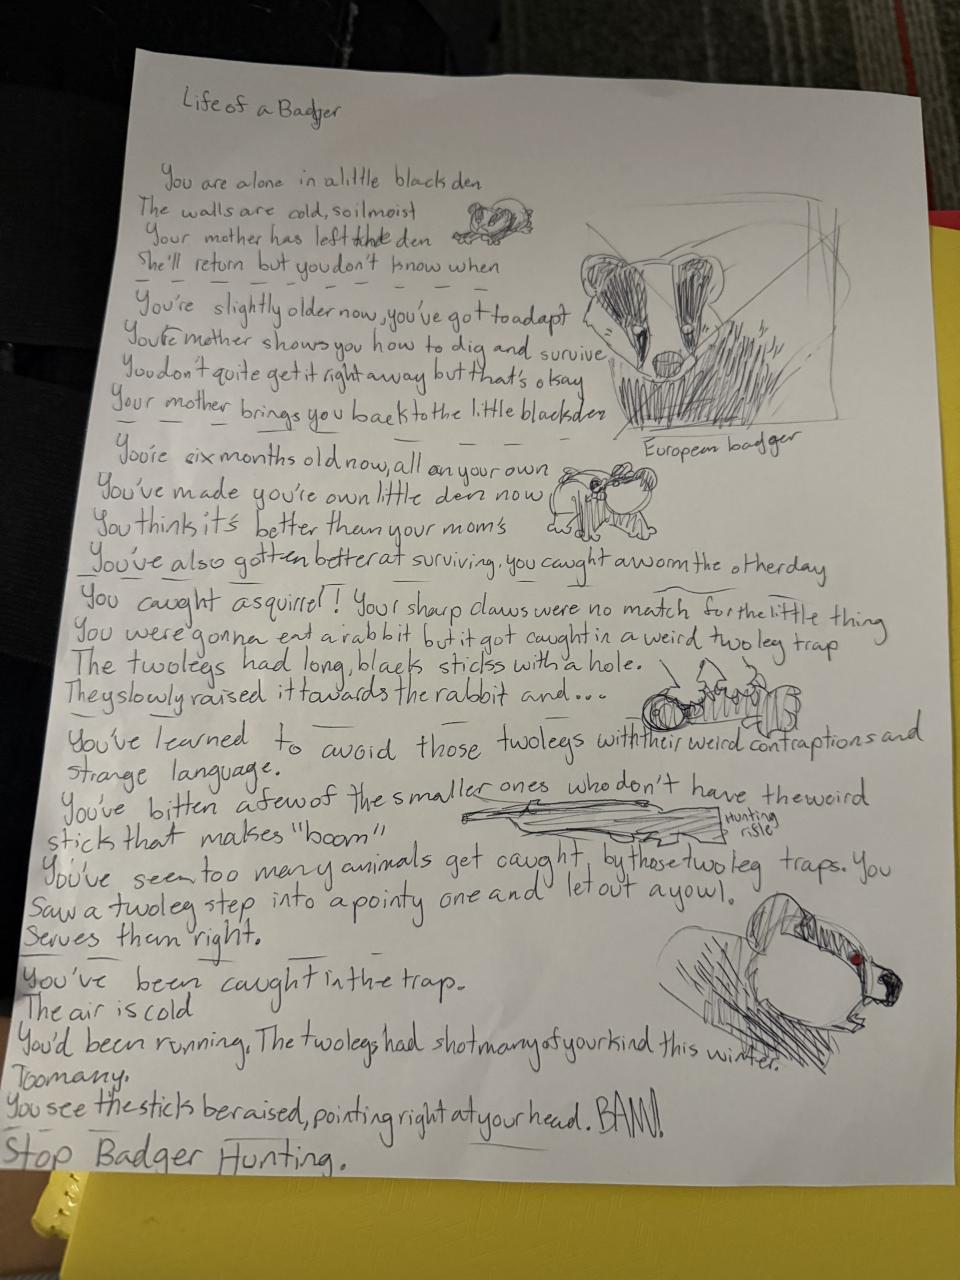 Life of a Badger
You are alone in a little black den
The walls are cold, soil moist
Your mother has left the den
She'll return but you don't know when
You're slightly older now, you've got to adapt
Your mother shows you how to dig and survive
You don't quite get it right away but that's okay
Your mother brings you back to the little black den
European badger
You're six months old now, all on your own
You've made you're own little den now
You think it's better than your mom's
You've also gotten better at surviving, you caught a worm the other day
You caught a squirrel! Your sharp claws were no match for the little thing
You were gonna eat a rabbit but it got caught in a weird two leg trap
The twolegs had long, black sticks with a hole.
They slowly raised it towards the rabbit and...
You've learned to avoid those twolegs with their weird contraptions and
strange language.
You've bitten a few of the smaller ones who don't have the weird
stick that makes "boom"
Hunting
rifle
You've seen too many animals get caught by those two leg traps. You
saw a twoleg step into a pointy one and let out a yowl.
Serves them right.
You've been caught in the trap.
The air is cold
You'd been running. The twolegs had shot many of your kind this winter.
Too many.
You see the stick be raised, pointing right at your head. BAM!
Stop Badger Hunting.